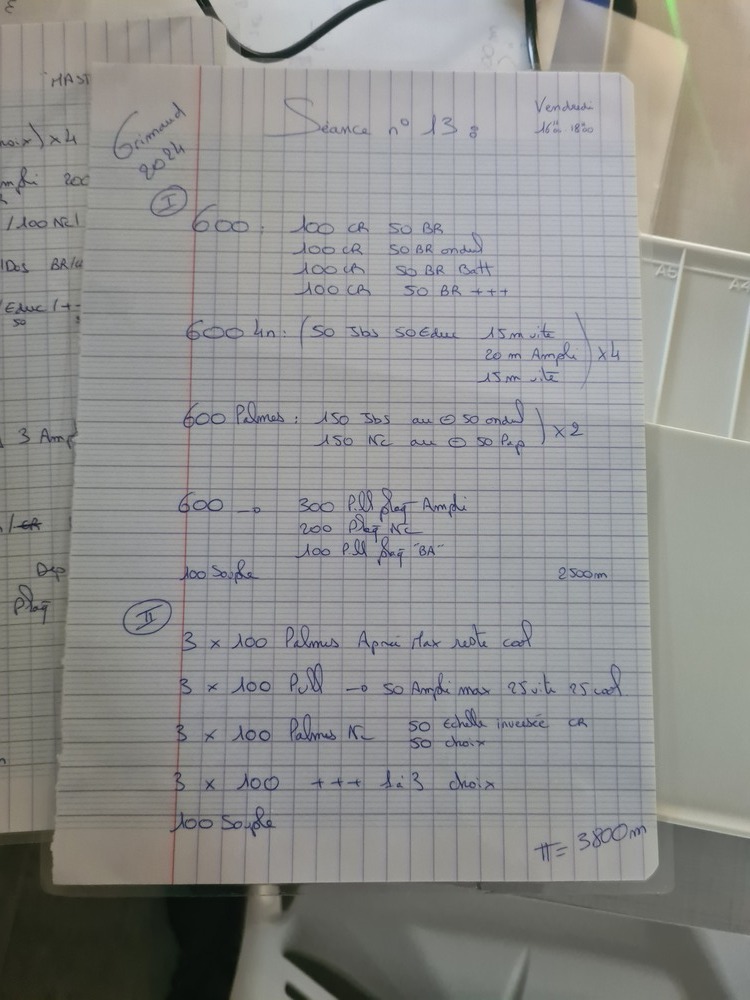 Grimaud
2024
Séance n° 13 :
Vendredi
16h00 18h00
I
600 : 100 CR 50 BR
100 CR 50 BR ondul
100 CR 50 BR Batt
100 CR 50 BR +++
600 4n : (50 Jbs 50 Educ 15 m vite
20 m Ampli ) x4
15 m vite
600 Palmes : 150 Jbs au ⊖ 50 ondul
150 Nc au ⊖ 50 Pap ) x 2
600 → 300 Pull plaq Ampli
200 Plaq Nc
100 Pull plaq "BA"
100 Souple 2500m
II
3 x 100 Palmes Apnée Max reste cool
3 x 100 Pull → 50 Ampli max 25 vite 25 cool
3 x 100 Palmes Nc 50 Echelle inversée CR
50 choix
3 x 100 +++ 1 à 3 choix
100 Souple
TT = 3800m
MAST
) x 4
200
/100 Nc/
Dos BR/4
Educ / +-
50
3 Amp
/ CR
Dep
Plaq
A5
A4